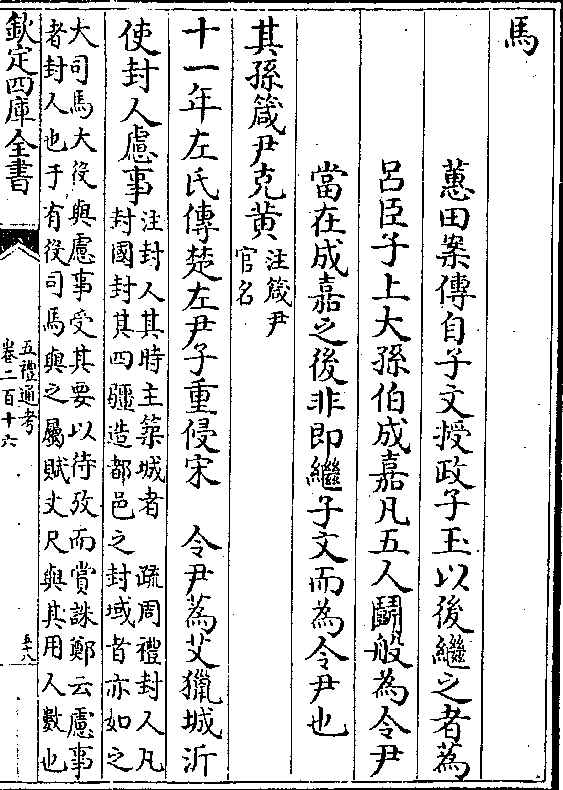 馬
蕙田案傳自子文授政子玉以後繼之者為
呂臣子上大孫伯成嘉凡五人鬬般為令尹
當在成嘉之後非即繼子文而為令尹也
其孫箴尹克黄注箴尹
官名
十一年左氏傳楚左尹子重侵宋　令尹蒍艾獵城沂
使封人慮事注封人其時主築城者　疏周禮封人凡
封國封其四疆造都邑之封域者亦如之
大司馬大役與慮事受其要以待攷而賞誅鄭云慮事
者封人也于有役司馬與之屬賦丈尺與其用人數也
欽定四庫全書
五禮通考
卷二百十六
五十八